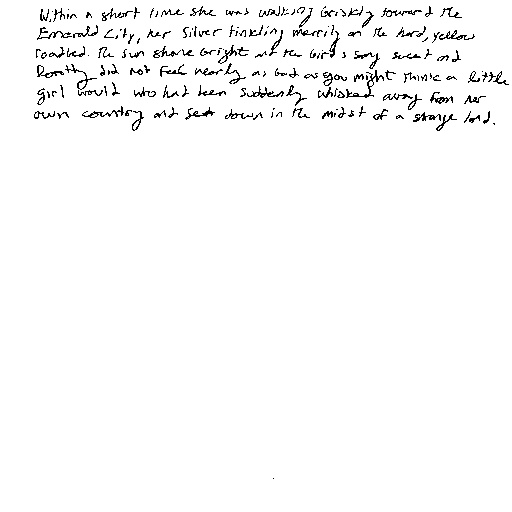 Within a short time she was walking briskly toward the
Emerald City, her Silver tinkling merrily on the hard, yellow
roadbed. The sun shone bright and the birds sang sweet and
Dorothy did not feel nearly as bad as you might think a little
girl would who had been suddenly whisked away from her
own country and set down in the midst of a strange land.